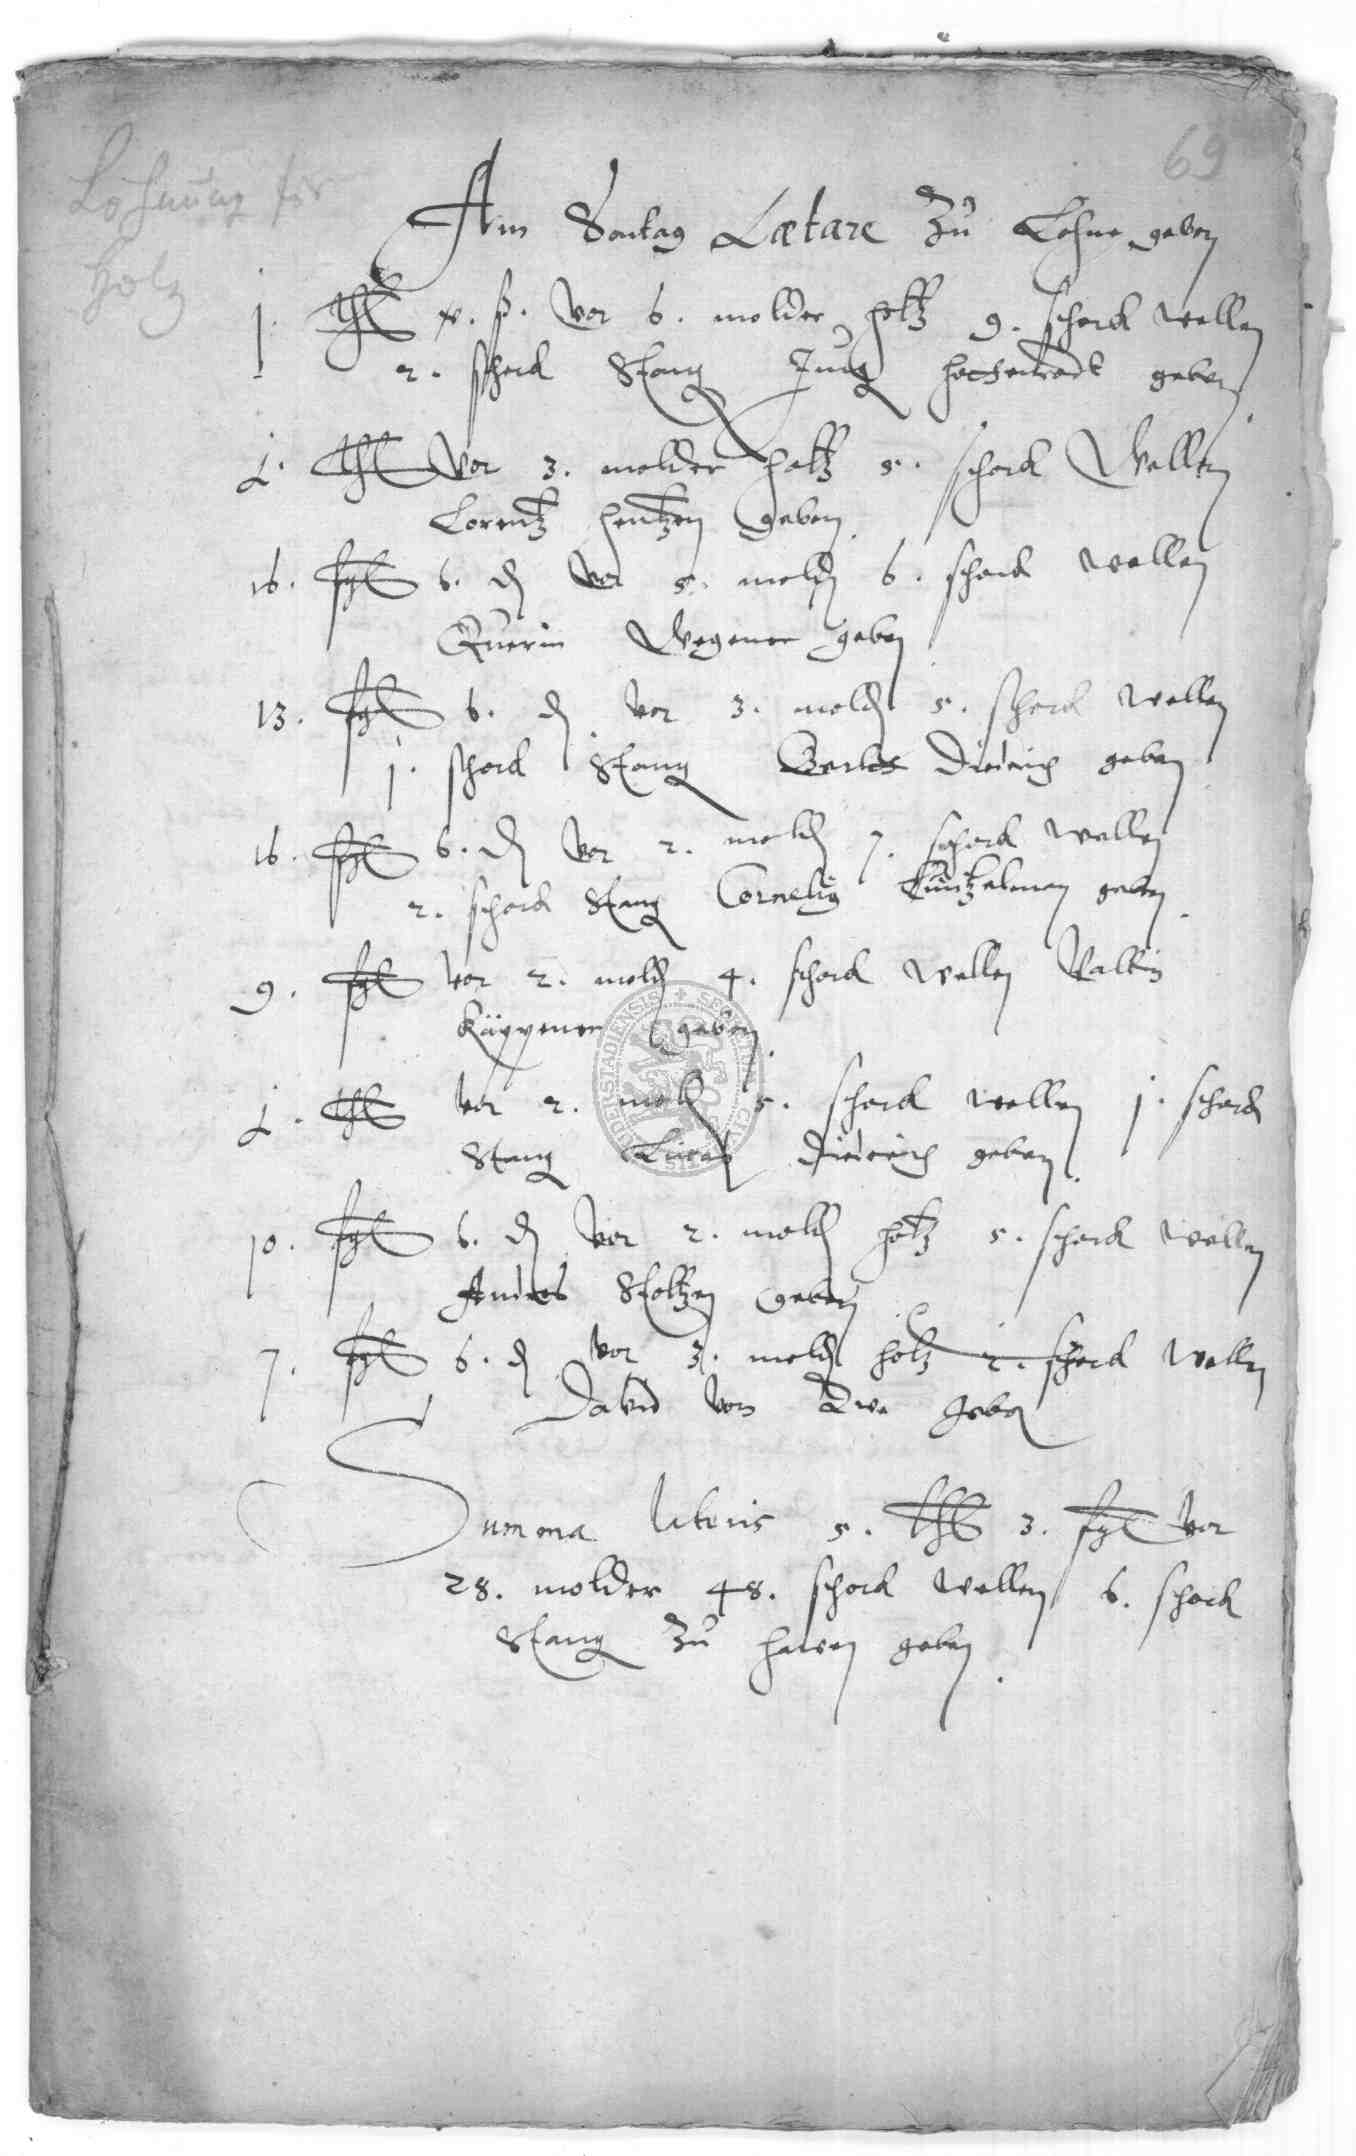 69
Lohnung for
Holz
Am Sontag Lætare Zu Lohne geben
1. thl x. ß. vor 6. molder holtz 9. schock wellen
2. schock Stang Jung geben
½. thl vor 3. molder holtz 5. schock Wellen
Lorentz Hentzen geben
16. sgl 6. d vor 5. mold 6. schock wellen
Querin Wegener geben
13. sgl 6. d vor 3. mold 5. schock wellen
1. schock Stang Diderich geben
16. sgl 6. d vor 2. mold 7. schock wellen
2. schock Stang Cornelig Kuntzelman geben
9. sgl vor 2. mold 4. schock wellen Valtin
geben
½. thl vor 2. mold 5. schock wellen 1. schock
Stang Lucas Diderich geben
10. sgl 6. d vor 2. mold holtz 5. schock wellen
Andres Stoltzen geben
7. sgl 6. d vor 3. mold holtz 2. schock wellen
David von geben
Summa lateris 5. thl 3. sgl vor
28. molder 48. schock wellen 6. schock
Stang Zu hawen geben